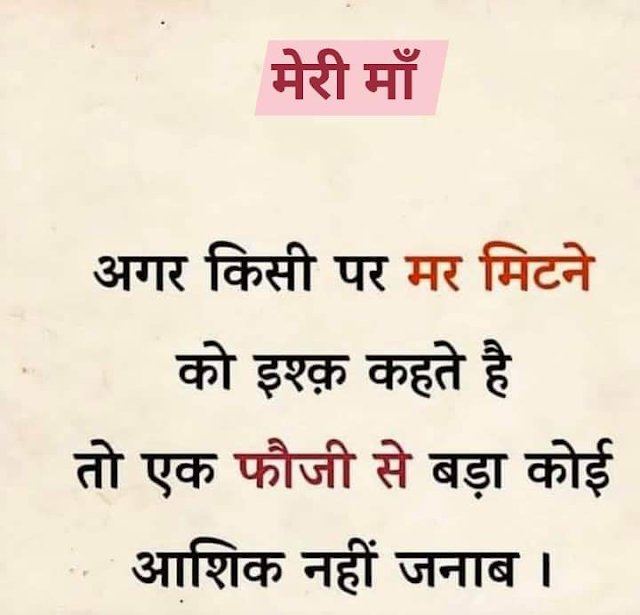 मेरी माँ
अगर किसी पर मर मिटने
को इश्क़ कहते है
तो एक फौजी से बड़ा कोई
आशिक नहीं जनाब ।